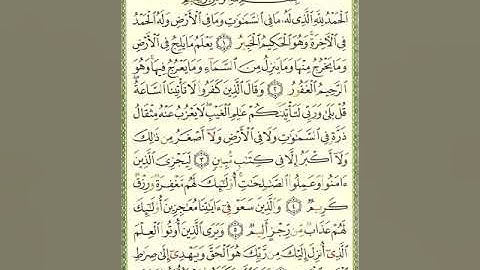 ٱلْحَمْدُ لِلَّهِ ٱلَّذِى لَهُۥ مَا فِى ٱلسَّمَـٰوَٰتِ وَمَا فِى ٱلْأَرْضِ وَلَهُ ٱلْحَمْدُ
فِى ٱلْـَٔاخِرَةِ ۚ وَهُوَ ٱلْحَكِيمُ ٱلْخَبِيرُ ١ يَعْلَمُ مَا يَلِجُ فِى ٱلْأَرْضِ
وَمَا يَخْرُجُ مِنْهَا وَمَا يَنزِلُ مِنَ ٱلسَّمَآءِ وَمَا يَعْرُجُ فِيهَا ۚ وَهُوَ
ٱلرَّحِيمُ ٱلْغَفُورُ ٢ وَقَالَ ٱلَّذِينَ كَفَرُوا۟ لَا تَأْتِينَا ٱلسَّاعَةُ ۖ
قُلْ بَلَىٰ وَرَبِّى لَتَأْتِيَنَّكُمْ عَـٰلِمِ ٱلْغَيْبِ ۖ لَا يَعْزُبُ عَنْهُ مِثْقَالُ
ذَرَّةٍ فِى ٱلسَّمَـٰوَٰتِ وَلَا فِى ٱلْأَرْضِ وَلَآ أَصْغَرُ مِن ذَٰلِكَ
وَلَآ أَكْبَرُ إِلَّا فِى كِتَـٰبٍ مُّبِينٍ ٣ لِّيَجْزِىَ ٱلَّذِينَ
ءَامَنُوا۟ وَعَمِلُوا۟ ٱلصَّـٰلِحَـٰتِ ۚ أُو۟لَـٰٓئِكَ لَهُم مَّغْفِرَةٌ وَرِزْقٌ
كَرِيمٌ ٤ وَٱلَّذِينَ سَعَوْ فِىٓ ءَايَـٰتِنَا مُعَـٰجِزِينَ أُو۟لَـٰٓئِكَ
لَهُمْ عَذَابٌ مِّن رِّجْزٍ أَلِيمٌ ٥ وَيَرَى ٱلَّذِينَ أُوتُوا۟ ٱلْعِلْمَ
ٱلَّذِىٓ أُنزِلَ إِلَيْكَ مِن رَّبِّكَ هُوَ ٱلْحَقَّ وَيَهْدِىٓ إِلَىٰ صِرَٰطِ